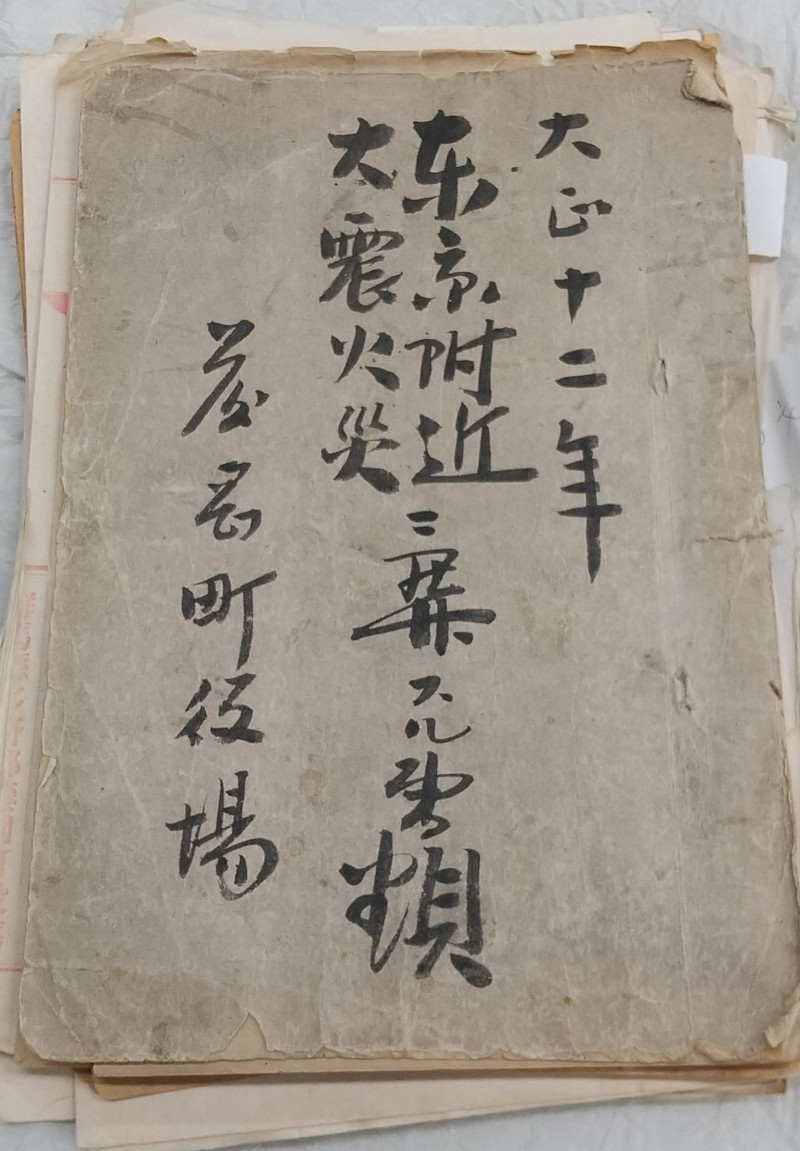 大正十二年
東京附近
大震火災
ニ関スル書類
町役場